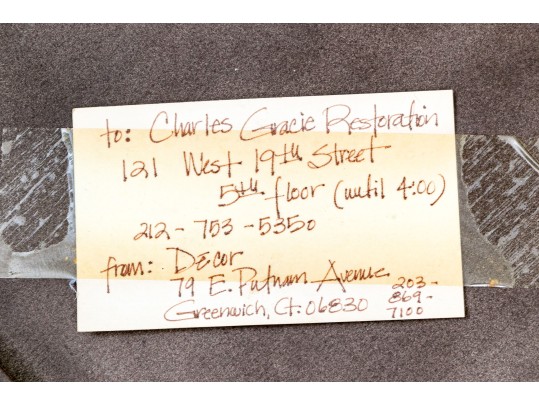 to: Charles Gracie Restoration
121 West 19th Street
5th floor (until 4:00)
212-753-5350
from: Decor
79 E. Putnam Avenue
Greenwich, Ct. 06830
203-
869-
7100